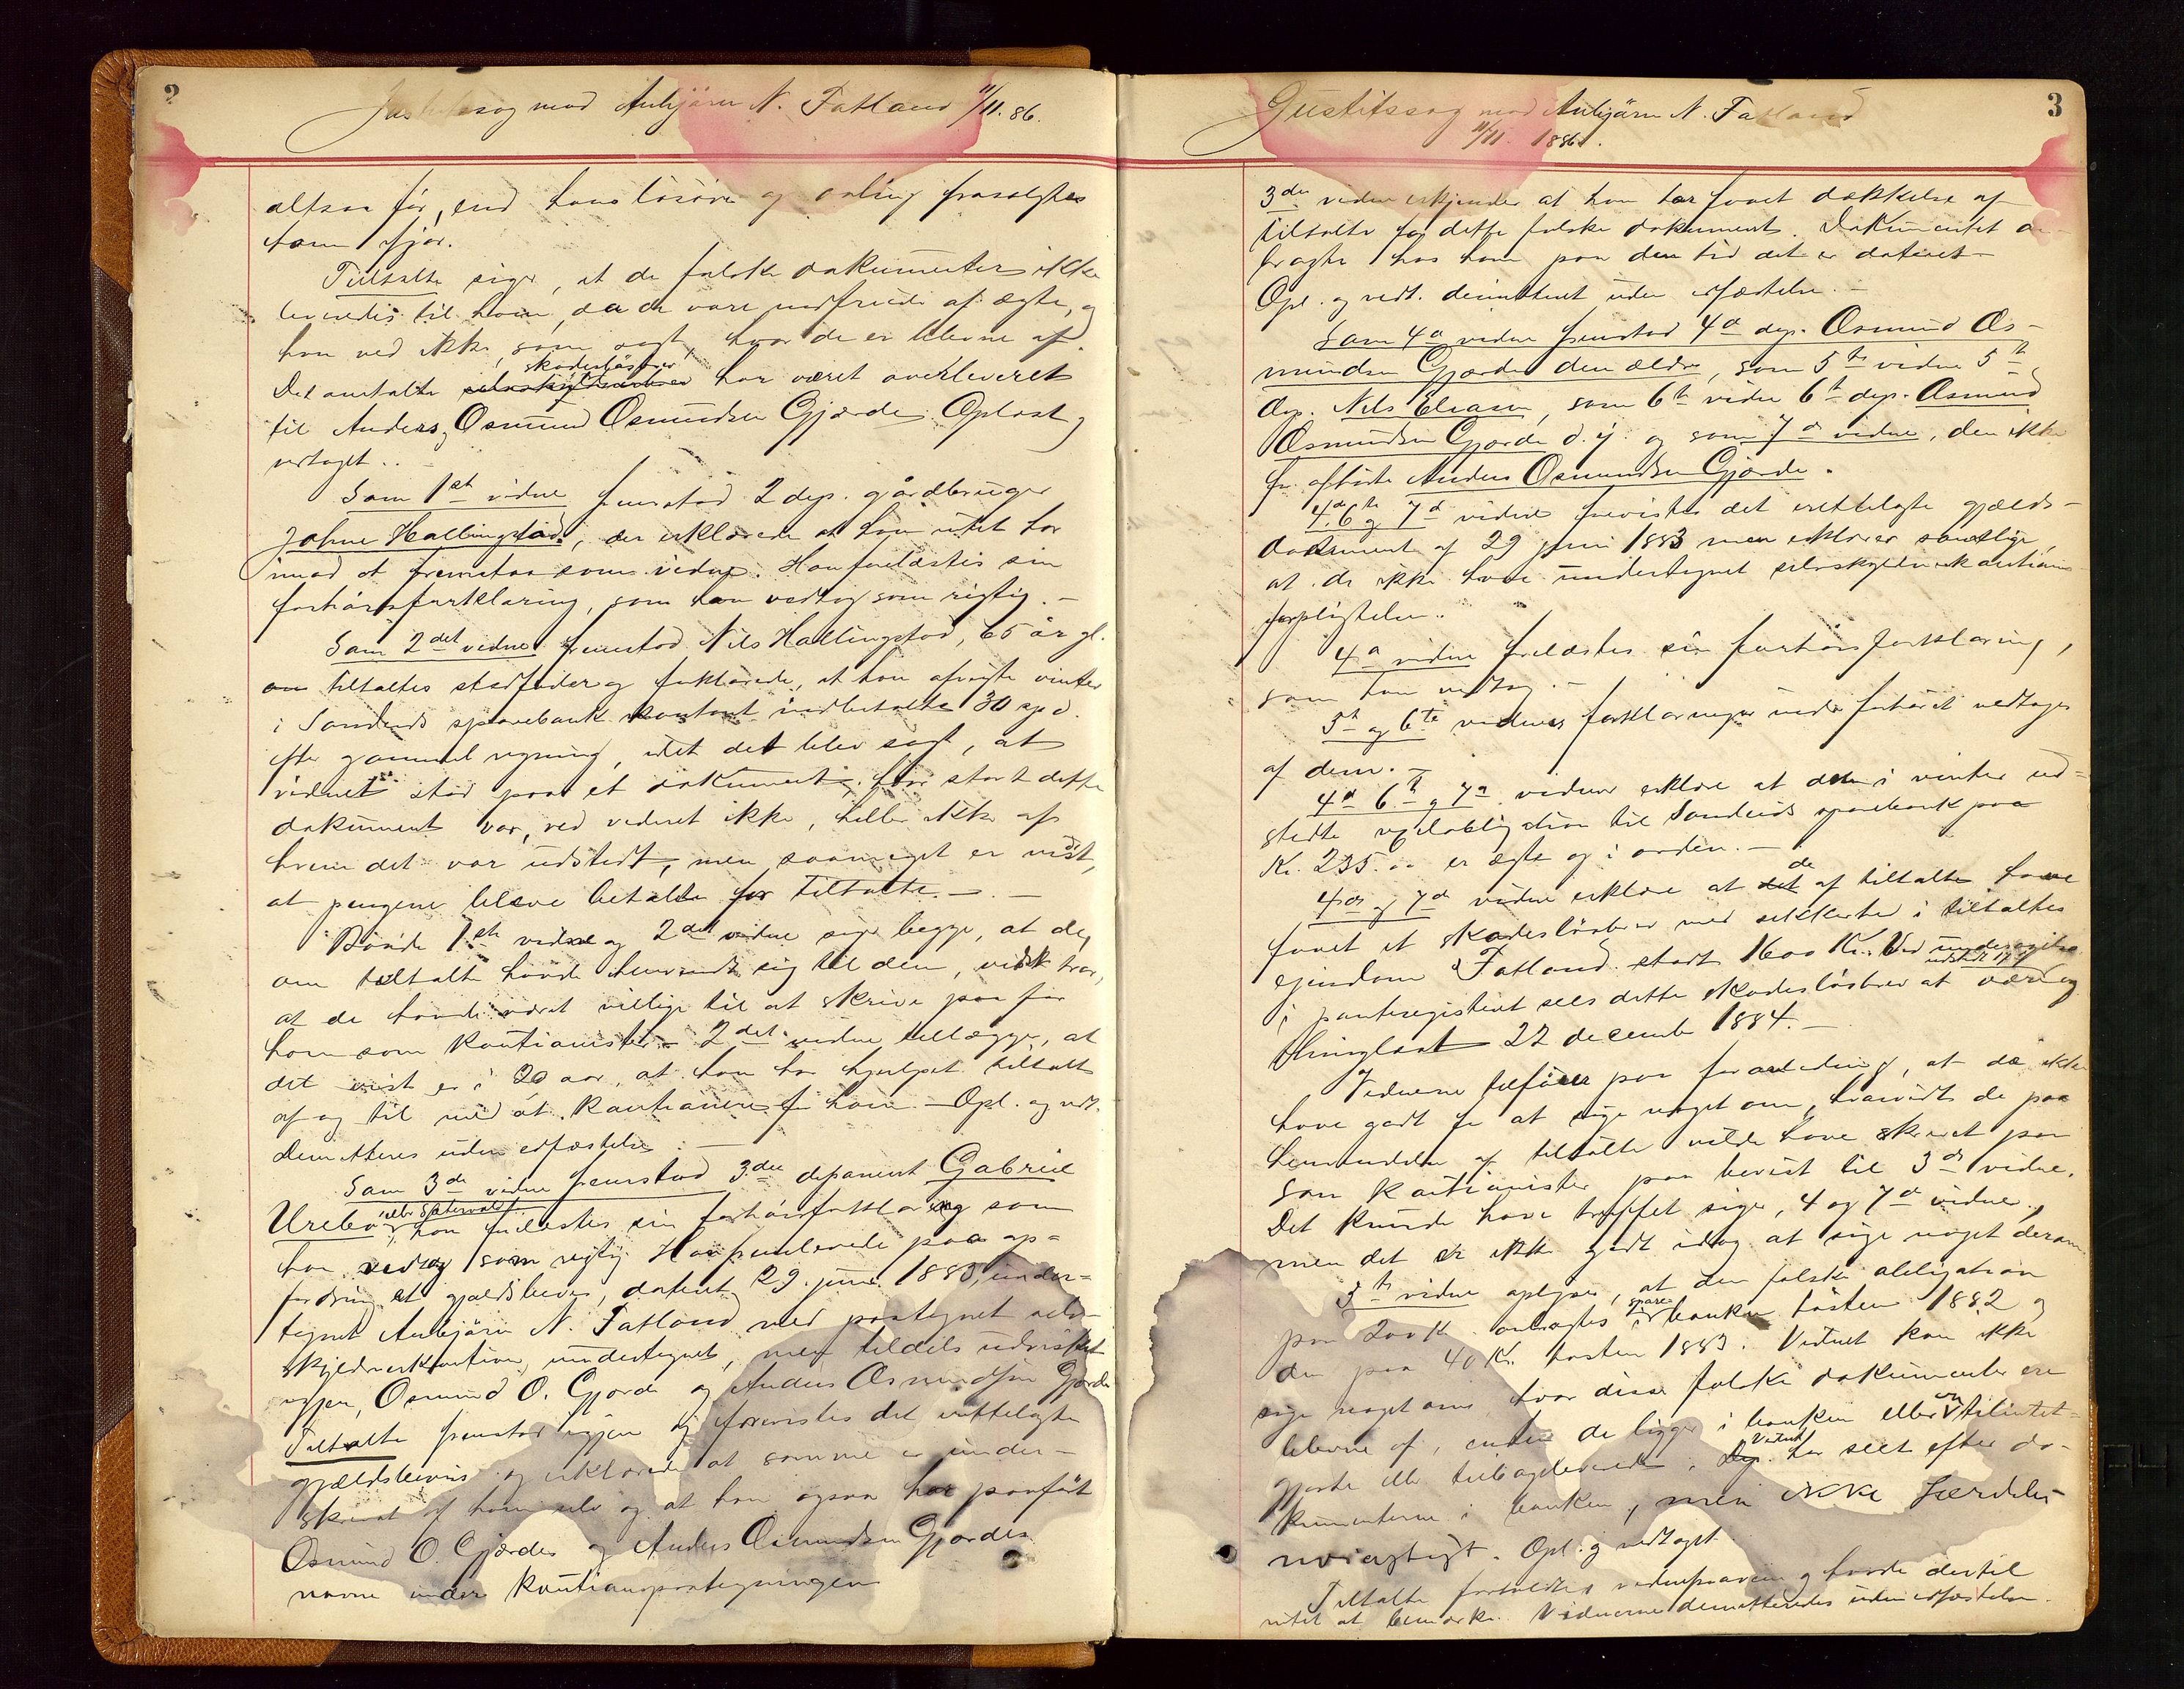 2
Justitssag mod Anbjørn N. Fatland 11/11. 86.
altsaa før, end hans løsøre og avling frasolgtes
ham ifjor.
Tiltalte siger, at de falske dokumenter ikke
leveredis til ham, da de vare indfriede af ægte, og
han ved ikke, som sagt, hvor de er blevne af.
skadesløsbrev
Det omtalte har været overleveret
til Anders, Osmund Osmundsen Gjærde. Oplæst,
vedtaget..
Som 1ste vidne fremstod 2 dep. gårdbruger
Johne Hallingstad, der erklærede at han intet har
imod at fremstaa som vidne. Han forelæstes sin
forhørsforklaring, som han vedtog som rigtig. —
Som 2det vidne fremstod Nils Hallingstad, 65 år gl.
tiltaltes stedfader og forklarede, at han afvigte vinter
i Sandeids sparebank kontant indbetalte 30 spd.
efter gammel regning, idet det blev sagt, at
vidnet stod paa et dokument; hvor stort dette
dokument var, ved vidnet ikke, heller ikke af
hvem det var udstedt, men saameget er vist,
at pengene bleve betalte for tiltalte. —
Baade 1ste vidne og 2det vidne siger begge, at de,
om tiltalte havde henvendt sig til dem, vidst tror,
at de havde været villige til at skrive paa for
ham som kautionister. 2det vidne tillægger, at
det vist er i 20 aar, at han har hjulpet tiltalte
af og til med at kautionere for ham. — Opl. og vedt.
Demitteres uden edfæstelse. —
Som 3die vidne fremstod 3die deponent Gabriel
Urebø, han forelæstes sin forhørsforklaring som
han vedtog som rigtig. Han fremleverede paa op-
fordring et gjældsbevis, dateret 29. juni 1883, under-
tegnet Anbjørn N. Fatland med paategnet selv-
skyldnerkaution, undertegnet, men tildels udvisket
igjen, Osmund O. Gjærde og Anders Osmundsen Gjærde
Tiltalte fremstod igjen og forevistes det irettelagte
gjældsbevis og erklærede at samme er under-
skrevet af ham selv og at han ogsaa har paaført
Osmund O. Gjærdes og Anders Osmundsen Gjærdes
navne under kautionspaategningen
3
Justitssag mod Anbjørn N. Fatland
11/11 1886.
3die vidne erkjender at han har faaet dækkelse af
tiltalte for dette falske dokument. Dokumentet
bragte hos ham paa den tid det er dateret —
Opl. og vedt. demitteret uden edfæstelse. —
Som 4de vidne fremstod 4de dep. Osmund Os-
mundsen Gjærde den ældre, som 5te vidne 5te
dep. Nils Eliasen, som 6te vidne 6te dep. Osmund
Osmundsen Gjærde d. y. og som 7de vidne, den ikke
før afhørte Anders Osmundsen Gjærde.
4de 6te og 7de vidne forevistes det irettelagte gjælds-
dokument af 29 juni 1883 men erklærer samtlige
at de ikke have undertegnet selvskyldnerkautions-
forpligtelsen.
4de vidne forelæstes sin forhørsforklaring,
som han vedtog. —
5te og 6te vidnes forklaringer under forhøret vedtoges
af dem. —
4de 6te og 7de vidner erklære at den i vinter ud-
stedte vexelobligation til Sandeids sparebank paa
Kr. 235.00 er ægte og i orden. —
4de og 7de vidne erklære at de af tiltalte have
faaet et skadesløsbrev med sikkerhed i tiltaltes
ejendom Fatland stort 1600 Kr. Ved undersøgelse
udstedt 17 og
i panteregistret sees dette skadesløsbrev at være
thinglæst 22 december 1884. —
Vidnerne tilføier paa foranledning, at de ikke
have godt for at sige noget om, hvorvidt de paa
henvendelse af tiltalte vilde have skrevet paa
som kautionister paa bevist til 3die vidne.
Det kunde have truffet siger, 4 og 7de vidne,
men det er ikke godt idag at sige noget derom.
5te vidne oplyser, at den falske obligation
paa 200 Kr. ombragtes i sparebanken høsten 1882 og
den paa 40 Kr. høsten 1883. Vidnet kan ikke
sige noget om hvor disse falske dokumenter ere
blevne af, enten de ligger i banken eller er tilintet-
gjorte eller tilbageleverede. Vidnet har seet efter do-
kumenterne i banken, men ikke særdeles
nøiagtigt. Opl. og vedtaget.
Tiltalte foreholdtes vidneprovene og havde dertil
intet at bemærke. Vidnerne demitteredes uden edfæstelse.